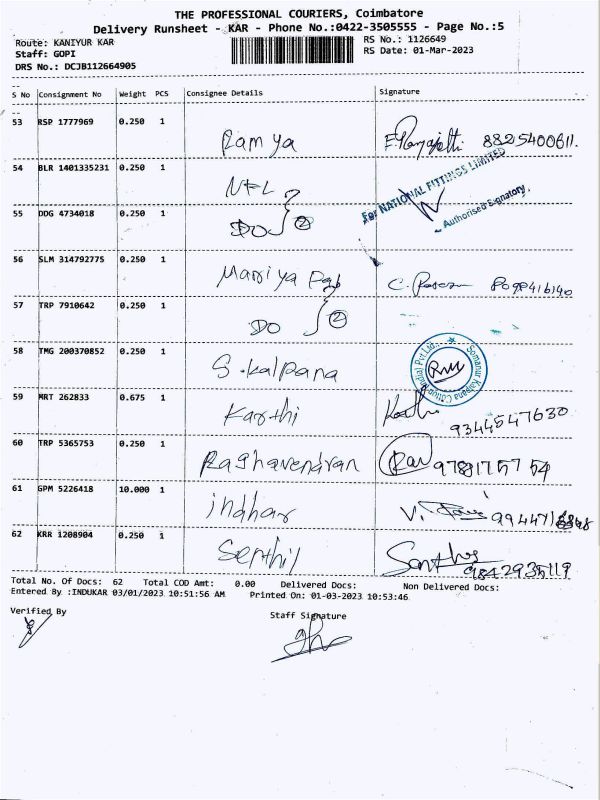 THE PROFESSIONAL COURIERS, Coimbatore
Delivery Runsheet - KAR - Phone No.:0422-3505555 - Page No.:5
Route: KANIYUR KAR
RS No.: 1126649
Staff: GOPI
RS Date: 01-Mar-2023
DRS No.: DCJB112664905
S No Consignment No Weight PCS Consignee Details Signature
53 RSP 1777969 0.250 1
Ramya 8825400611.
54 BLR 1401335231 0.250 1
NFL
For NATIONAL FITTINGS LIMITED
Authorised Signatory.
55 DDG 4734018 0.250 1
DO 2
56 SLM 314792775 0.250 1
Mariya Fab C. 8098416140
57 TRP 7910642 0.250 1
DO 2
58 TMG 200370852 0.250 1
S.kalpana
Somanur Kalpana Cotton (India) Pvt.Ltd.,
59 MRT 262833 0.675 1
Karthi 9344547630
60 TRP 5365753 0.250 1
Raghavendran
61 GPM 5226418 10.000 1
indhar V.
62 KRR 1208904 0.250 1
Senthil 9842935119
Total No. Of Docs: 62 Total COD Amt: 0.00 Delivered Docs: Non Delivered Docs:
Entered By :INDUKAR 03/01/2023 10:51:56 AM Printed On: 01-03-2023 10:53:46
Verified By Staff Signature